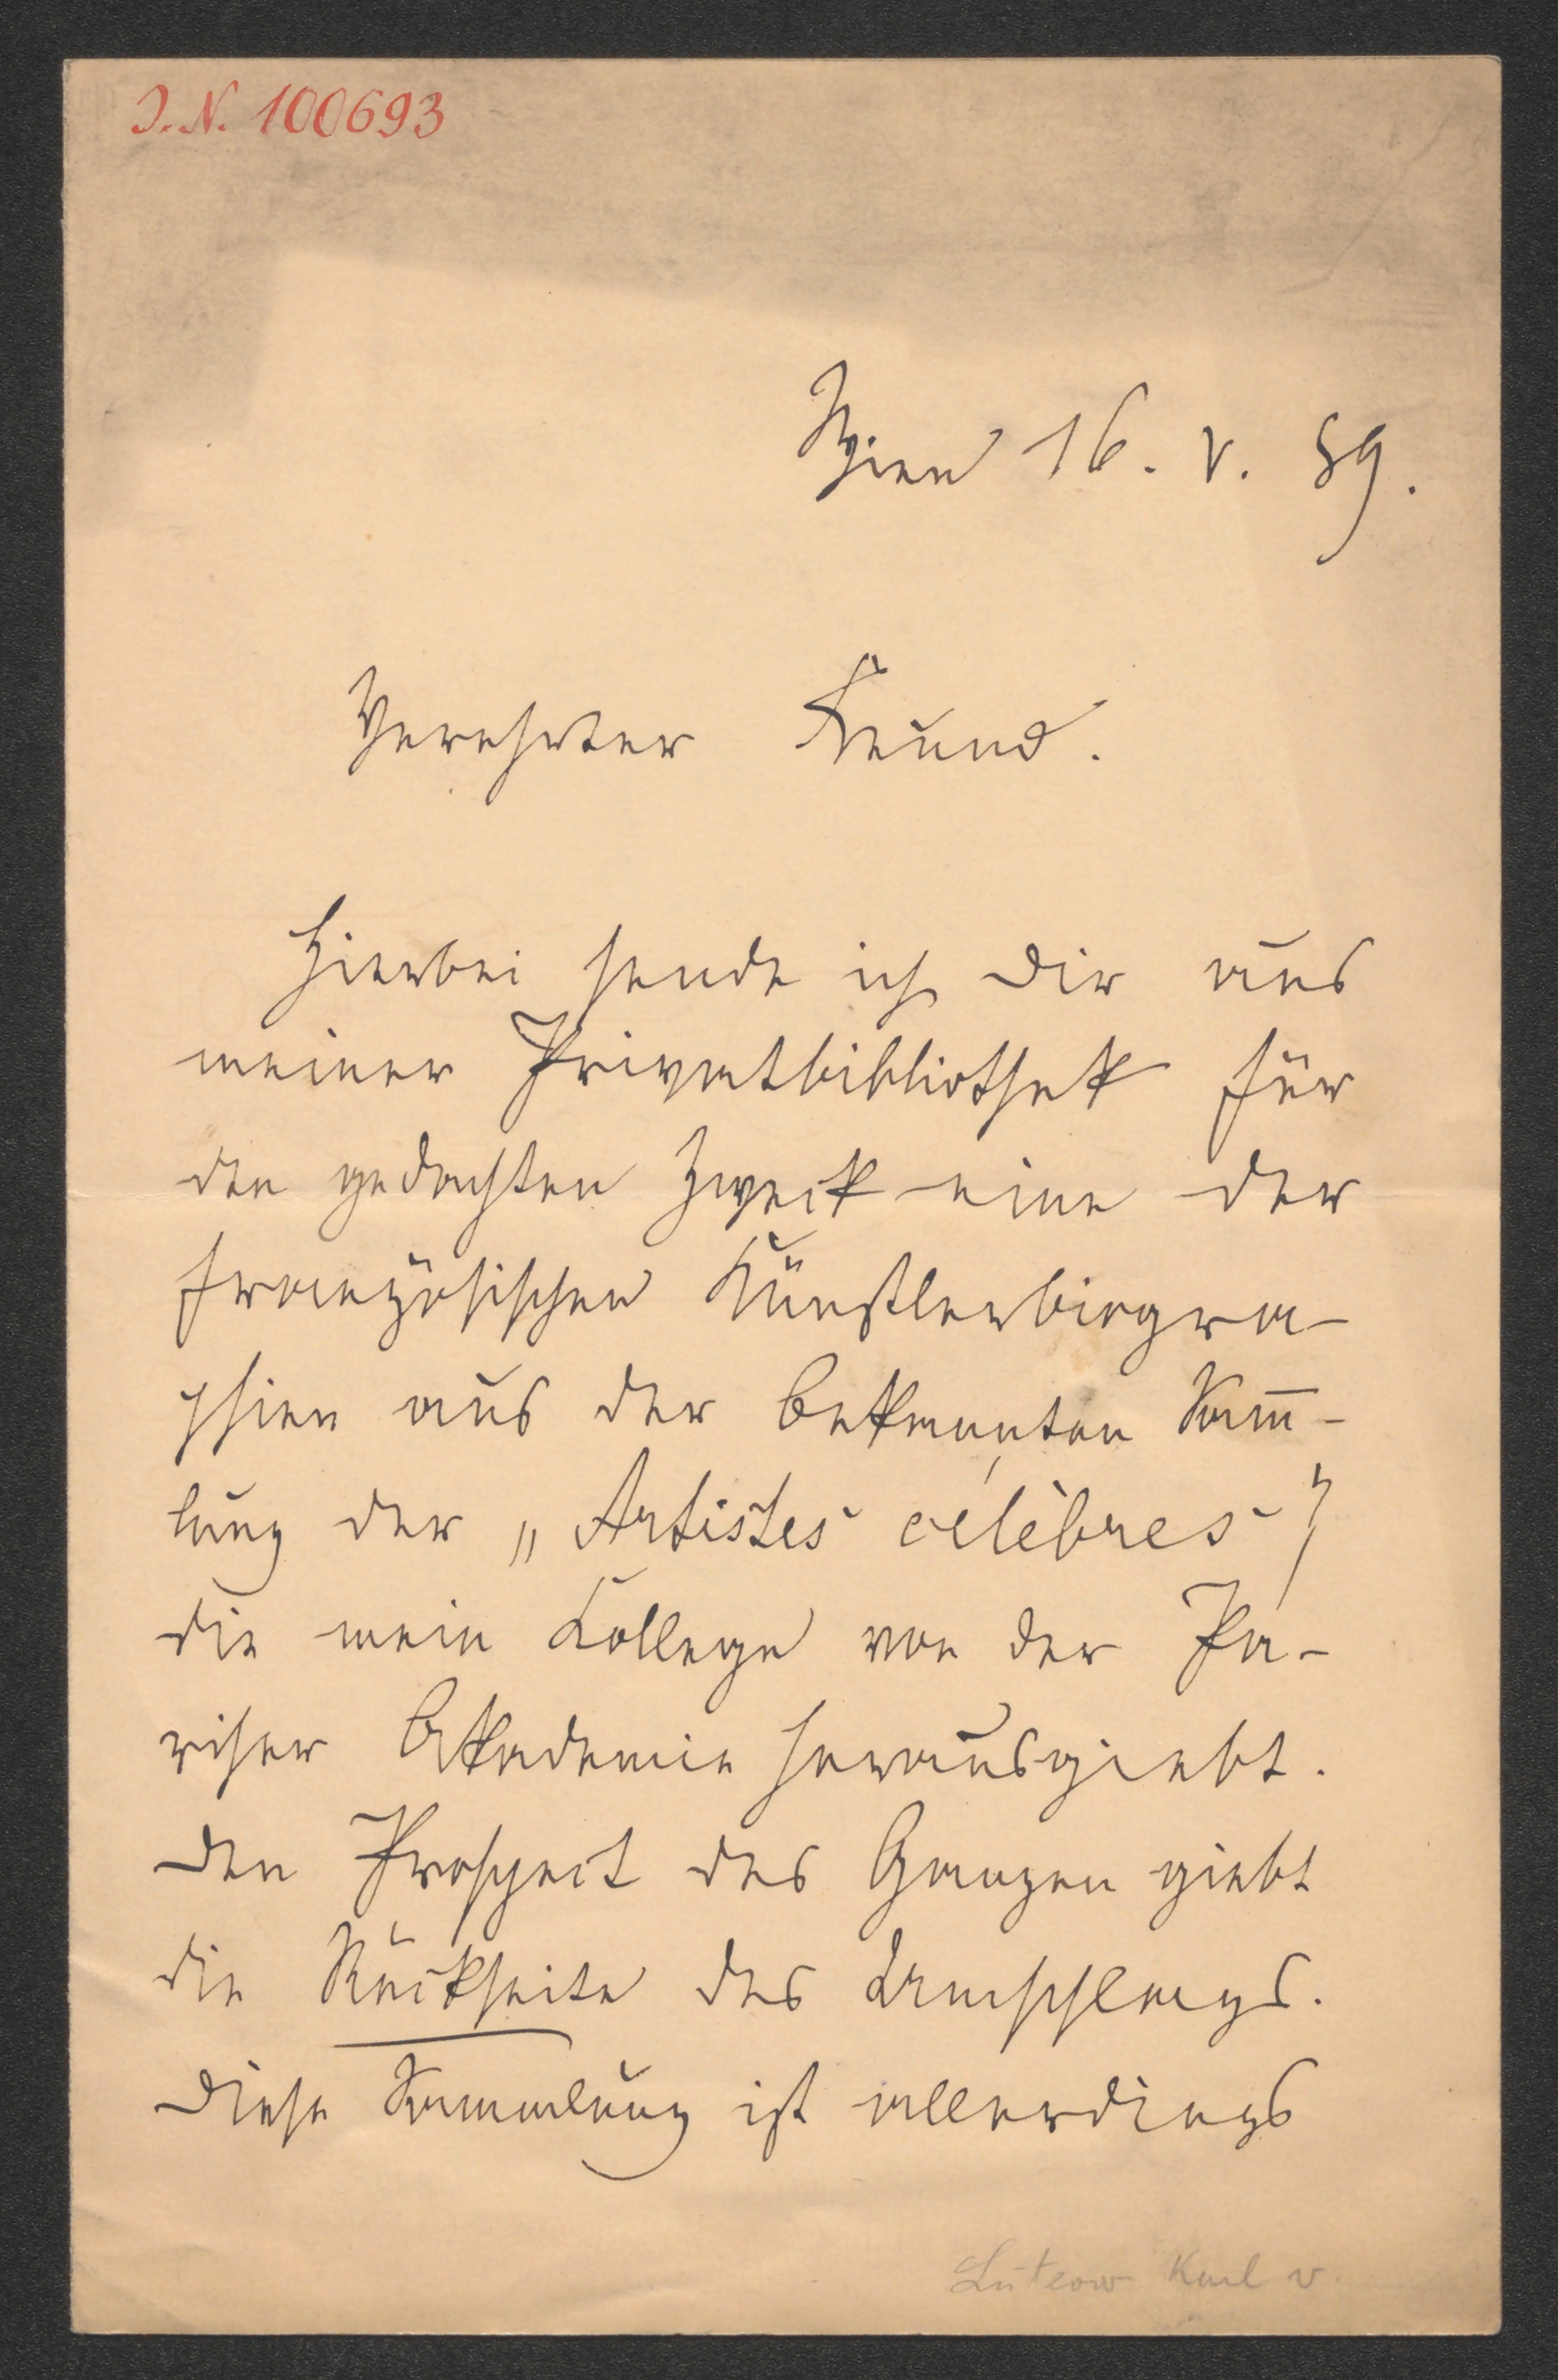 J.N. 100693
Wien 16. V. 89.
Verehrter Freund.
Hierbei sende ich Dir aus
meiner Privatbibliothek für
den gedachten Zweck eine der
französischen Künstlerbiogra-
phien aus der bekannten Sam̅-
lung der „Artistes célèbres",
die mein College von der Pa-
riser Akademie herausgiebt.
Den Prospect des Ganzen giebt
die Rückseite des Umschlags.
Diese Sammlung ist allerdings
Lützow Karl v.